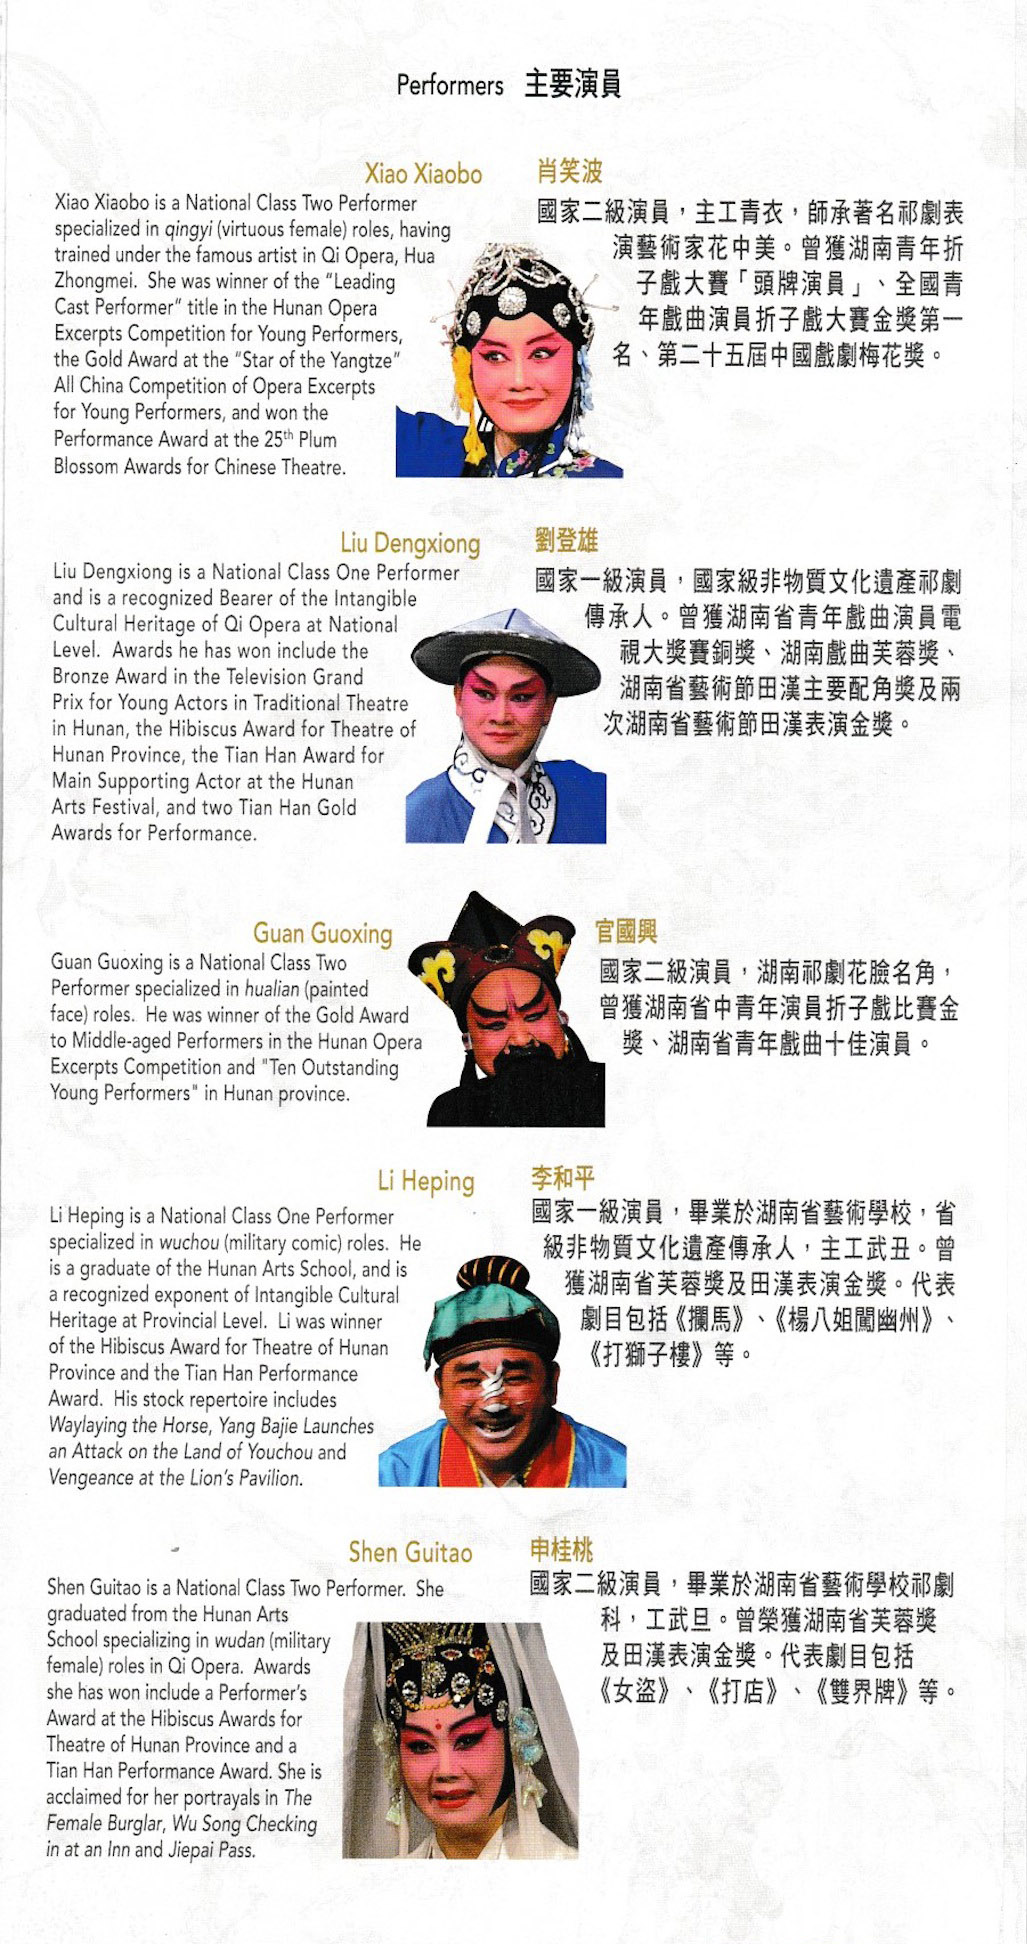 Performers 主要演員
Xiao Xiaobo
Xiao Xiaobo is a National Class Two Performer
specialized in qingyi (virtuous female) roles, having
trained under the famous artist in Qi Opera, Hua
Zhongmei. She was winner of the “Leading
Cast Performer” title in the Hunan Opera
Excerpts Competition for Young Performers,
the Gold Award at the “Star of the Yangtze”
All China Competition of Opera Excerpts
for Young Performers, and won the
Performance Award at the 25th Plum
Blossom Awards for Chinese Theatre.
肖笑波
國家二級演員，主工青衣，師承著名祁劇表
演藝術家花中美。曾獲湖南青年折
子戲大賽「頭牌演員」、全國青
年戲曲演員折子戲大賽金獎第一
名、第二十五屆中國戲劇梅花獎。
Liu Dengxiong
Liu Dengxiong is a National Class One Performer
and is a recognized Bearer of the Intangible
Cultural Heritage of Qi Opera at National
Level. Awards he has won include the
Bronze Award in the Television Grand
Prix for Young Actors in Traditional Theatre
in Hunan, the Hibiscus Award for Theatre of
Hunan Province, the Tian Han Award for
Main Supporting Actor at the Hunan
Arts Festival, and two Tian Han Gold
Awards for Performance.
劉登雄
國家一級演員，國家級非物質文化遺產祁劇
傳承人。曾獲湖南省青年戲曲演員電
視大獎賽銅獎、湖南戲曲芙蓉獎、
湖南省藝術節田漢主要配角獎及兩
次湖南省藝術節田漢表演金獎。
Guan Guoxing
Guan Guoxing is a National Class Two
Performer specialized in hualian (painted
face) roles. He was winner of the Gold Award
to Middle-aged Performers in the Hunan Opera
Excerpts Competition and "Ten Outstanding
Young Performers" in Hunan province.
官國興
國家二級演員，湖南祁劇花臉名角，
曾獲湖南省中青年演員折子戲比賽金
獎、湖南省青年戲曲十佳演員。
Li Heping
Li Heping is a National Class One Performer
specialized in wuchou (military comic) roles. He
is a graduate of the Hunan Arts School, and is
a recognized exponent of Intangible Cultural
Heritage at Provincial Level. Li was winner
of the Hibiscus Award for Theatre of Hunan
Province and the Tian Han Performance
Award. His stock repertoire includes
Waylaying the Horse, Yang Bajie Launches
an Attack on the Land of Youchou and
Vengeance at the Lion’s Pavilion.
李和平
國家一級演員，畢業於湖南省藝術學校，省
級非物質文化遺產傳承人，主工武丑。曾
獲湖南省芙蓉獎及田漢表演金獎。代表
劇目包括《攔馬》、《楊八姐闖幽州》、
《打獅子樓》等。
Shen Guitao
Shen Guitao is a National Class Two Performer. She
graduated from the Hunan Arts
School specializing in wudan (military
female) roles in Qi Opera. Awards
she has won include a Performer’s
Award at the Hibiscus Awards for
Theatre of Hunan Province and a
Tian Han Performance Award. She is
acclaimed for her portrayals in The
Female Burglar, Wu Song Checking
in at an Inn and Jiepai Pass.
申桂桃
國家二級演員，畢業於湖南省藝術學校祁劇
科，工武旦。曾榮獲湖南省芙蓉獎
及田漢表演金獎。代表劇目包括
《女盜》、《打店》、《雙界牌》等。